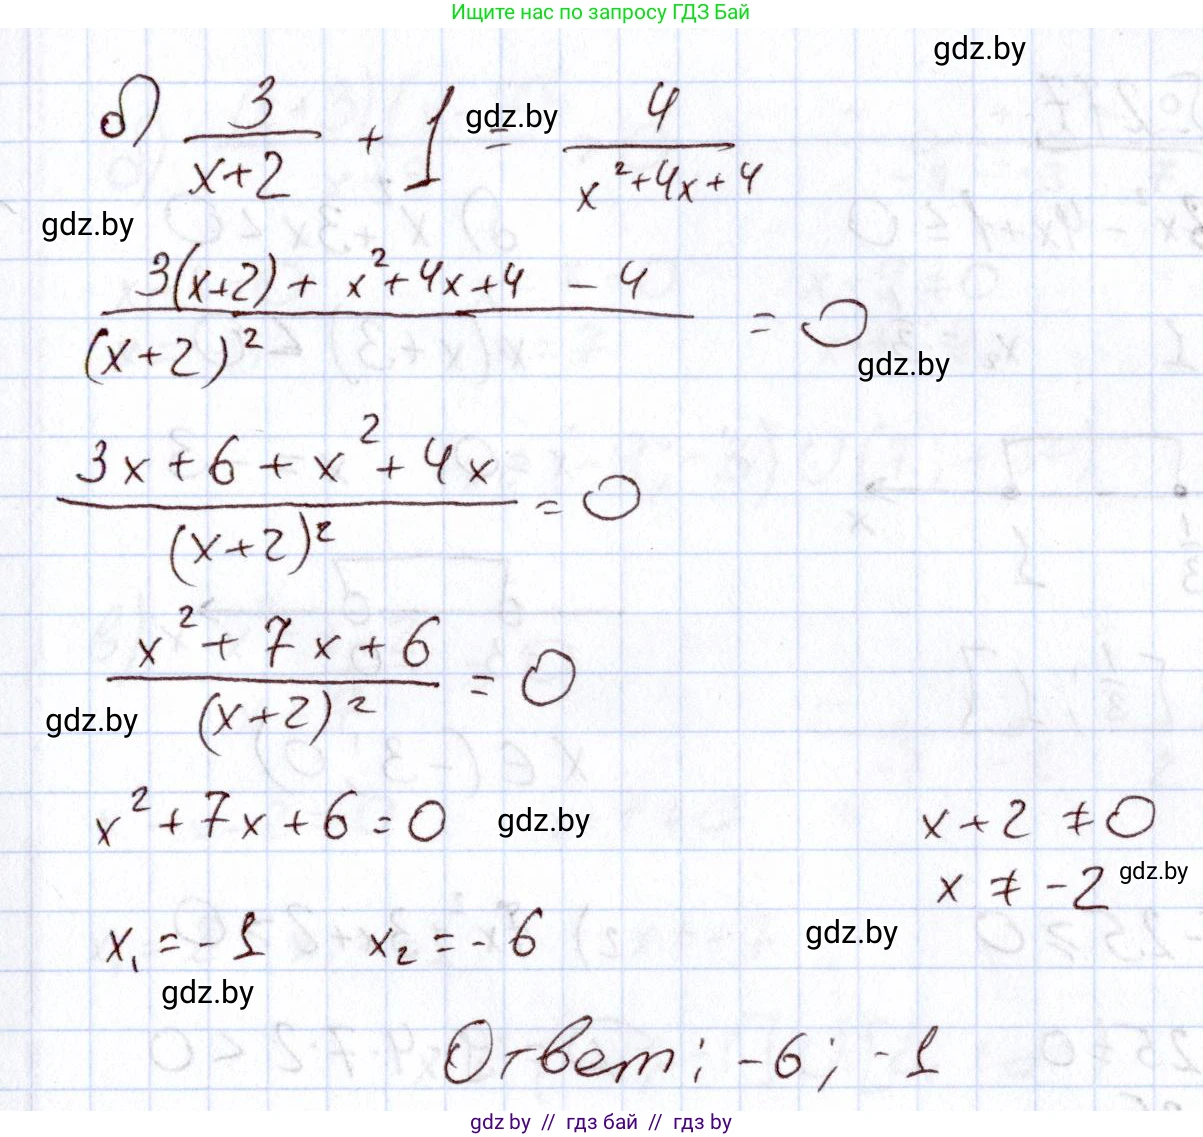 Ищите нас по запросу ГДЗ Бай
gdz.by
б) 3/(x+2) + 1 = 4/(x²+4x+4)
gdz.by
gdz.by
(3(x+2) + x²+4x+4 - 4)/(x+2)² = 0
gdz.by
(3x+6+x²+4x)/(x+2)² = 0
(x²+7x+6)/(x+2)² = 0
gdz.by
x²+7x+6=0
gdz.by
x+2 ≠ 0
x ≠ -2
gdz.by
x₁ = -1 x₂ = -6
gdz.by
gdz.by
Ответ: -6; -1
gdz.by // гдз бай // гдз by